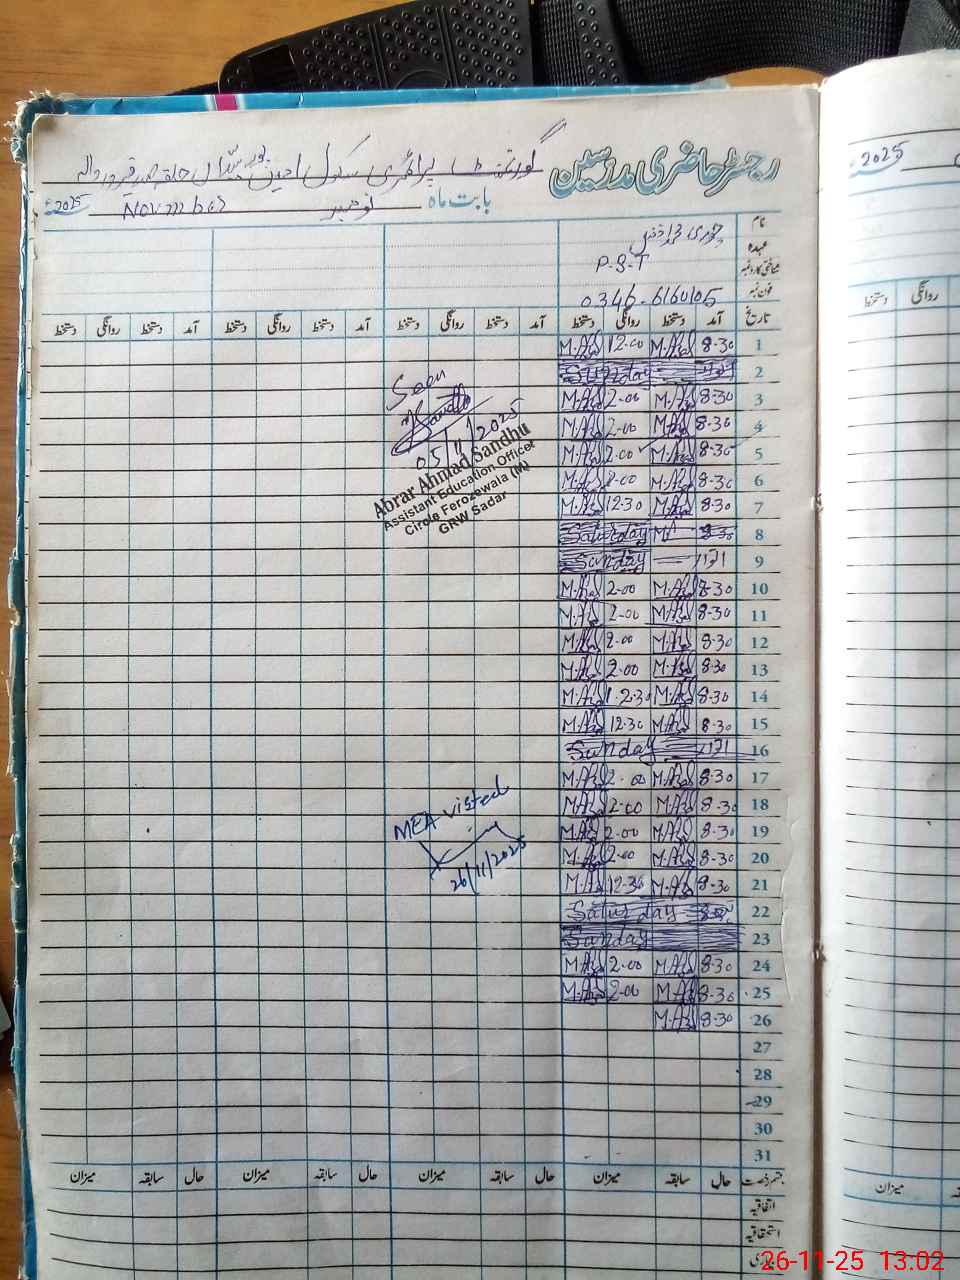 رجسٹر حاضری مدرسین
گورنمنٹ پرائمری سکول
بابت ماہ نومبر November 2025ء
2025ء
نام
عہدہ P.S.T
شناختی کارڈ نمبر
فون نمبر 0346-6160105
تاریخ آمد دستخط روانگی دستخط آمد دستخط روانگی دستخط آمد دستخط روانگی دستخط
روانگی دستخط
1 8-30 12-00
2 اتوار Sunday
3 8-30 2-00
4 8-30 2-00
5 8-30 2-00
6 8-30 2-00
7 8-30 12-30
8 8-30 Saturday
9 اتوار Sunday
10 8-30 2-00
11 8-30 2-00
12 8-30 2-00
13 8-30 2-00
14 8-30 12-30
15 8-30 12-30
16 اتوار Sunday
17 8-30 2-00
18 8-30 2-00
19 8-30 2-00
20 8-30 2-00
21 8-30 12-30
22 Saturday
23 Sunday
24 8-30 2-00
25 8-30 2-00
26 8-30
27
28
29
30
31
Seen
05/11/2025
Abrar Ahmad Sandhu
Assistant Education Officer
Circle Ferozewala (M)
GRW Sadar
MEA visited
26/11/2025
حال سابقہ میزان حال سابقہ میزان حال سابقہ میزان حال سابقہ میزان
میزان
اتفاقیہ
استحقاقیہ
26-11-25 13.02